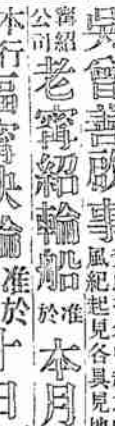 吳曾善啟事
風紀起見各員見
甯紹公司
老甯紹輪船
准於本月
本行福甯快輪
准於十日